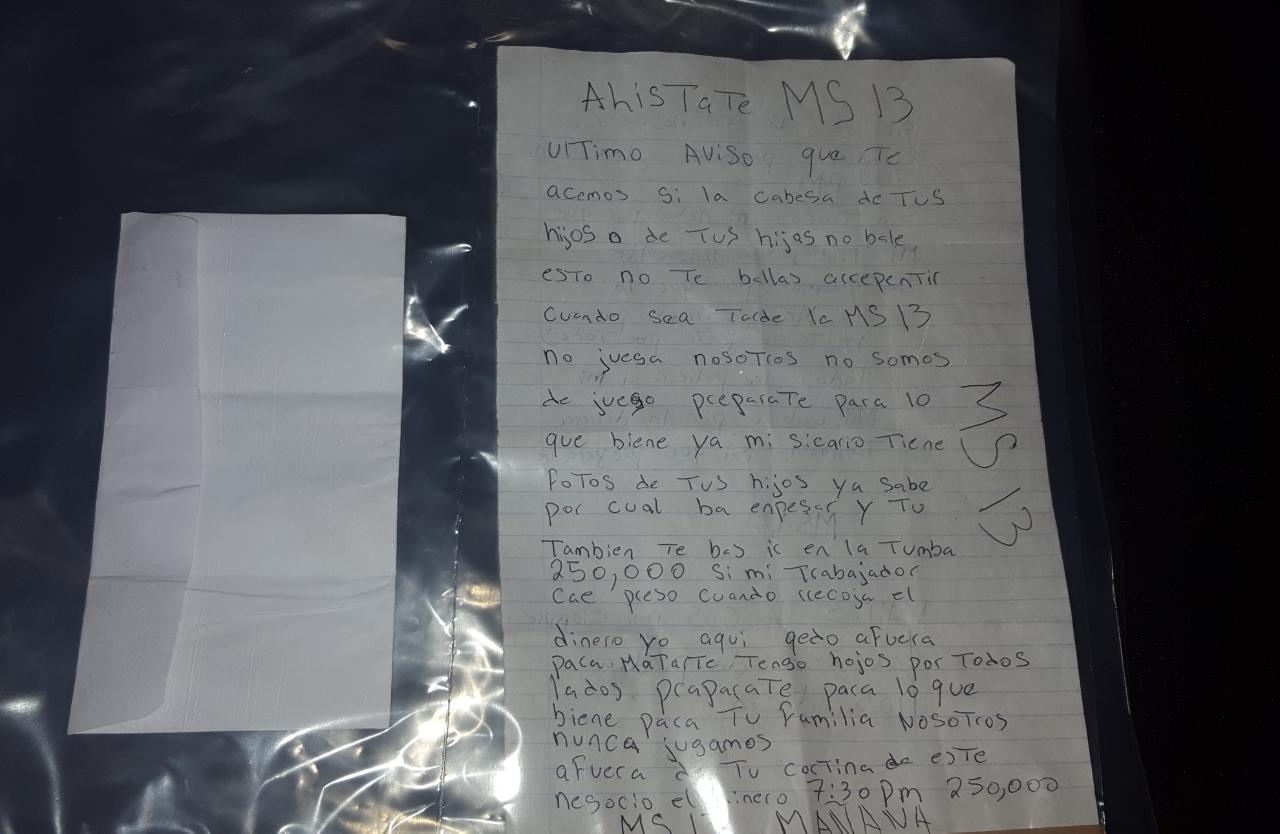 AhisTaTe MS 13
UlTimo Aviso que Te
acemos si la cabesa de Tus
hijos o de Tus hijas no bale
esTo no Te ballas arrepenTir
cuando sea Tarde la MS 13
no juega nosoTros no somos
de juego preparaTe para lo
que biene ya mi sicario Tiene
foTos de Tus hijos ya sabe
por cual ba enpesar y Tu
Tambien Te bas ir en la Tumba
250,000 si mi Trabajador
cae preso cuando rrecoja el
dinero yo aqui qedo afuera
para MaTarTe Tengo hojos por Todos
lados praparaTe para lo que
biene para Tu familia NosoTros
nunca jugamos
afuera Tu corTina de esTe
negocio el 7:30 pm 250,000
MS MAÑANA
MS 13